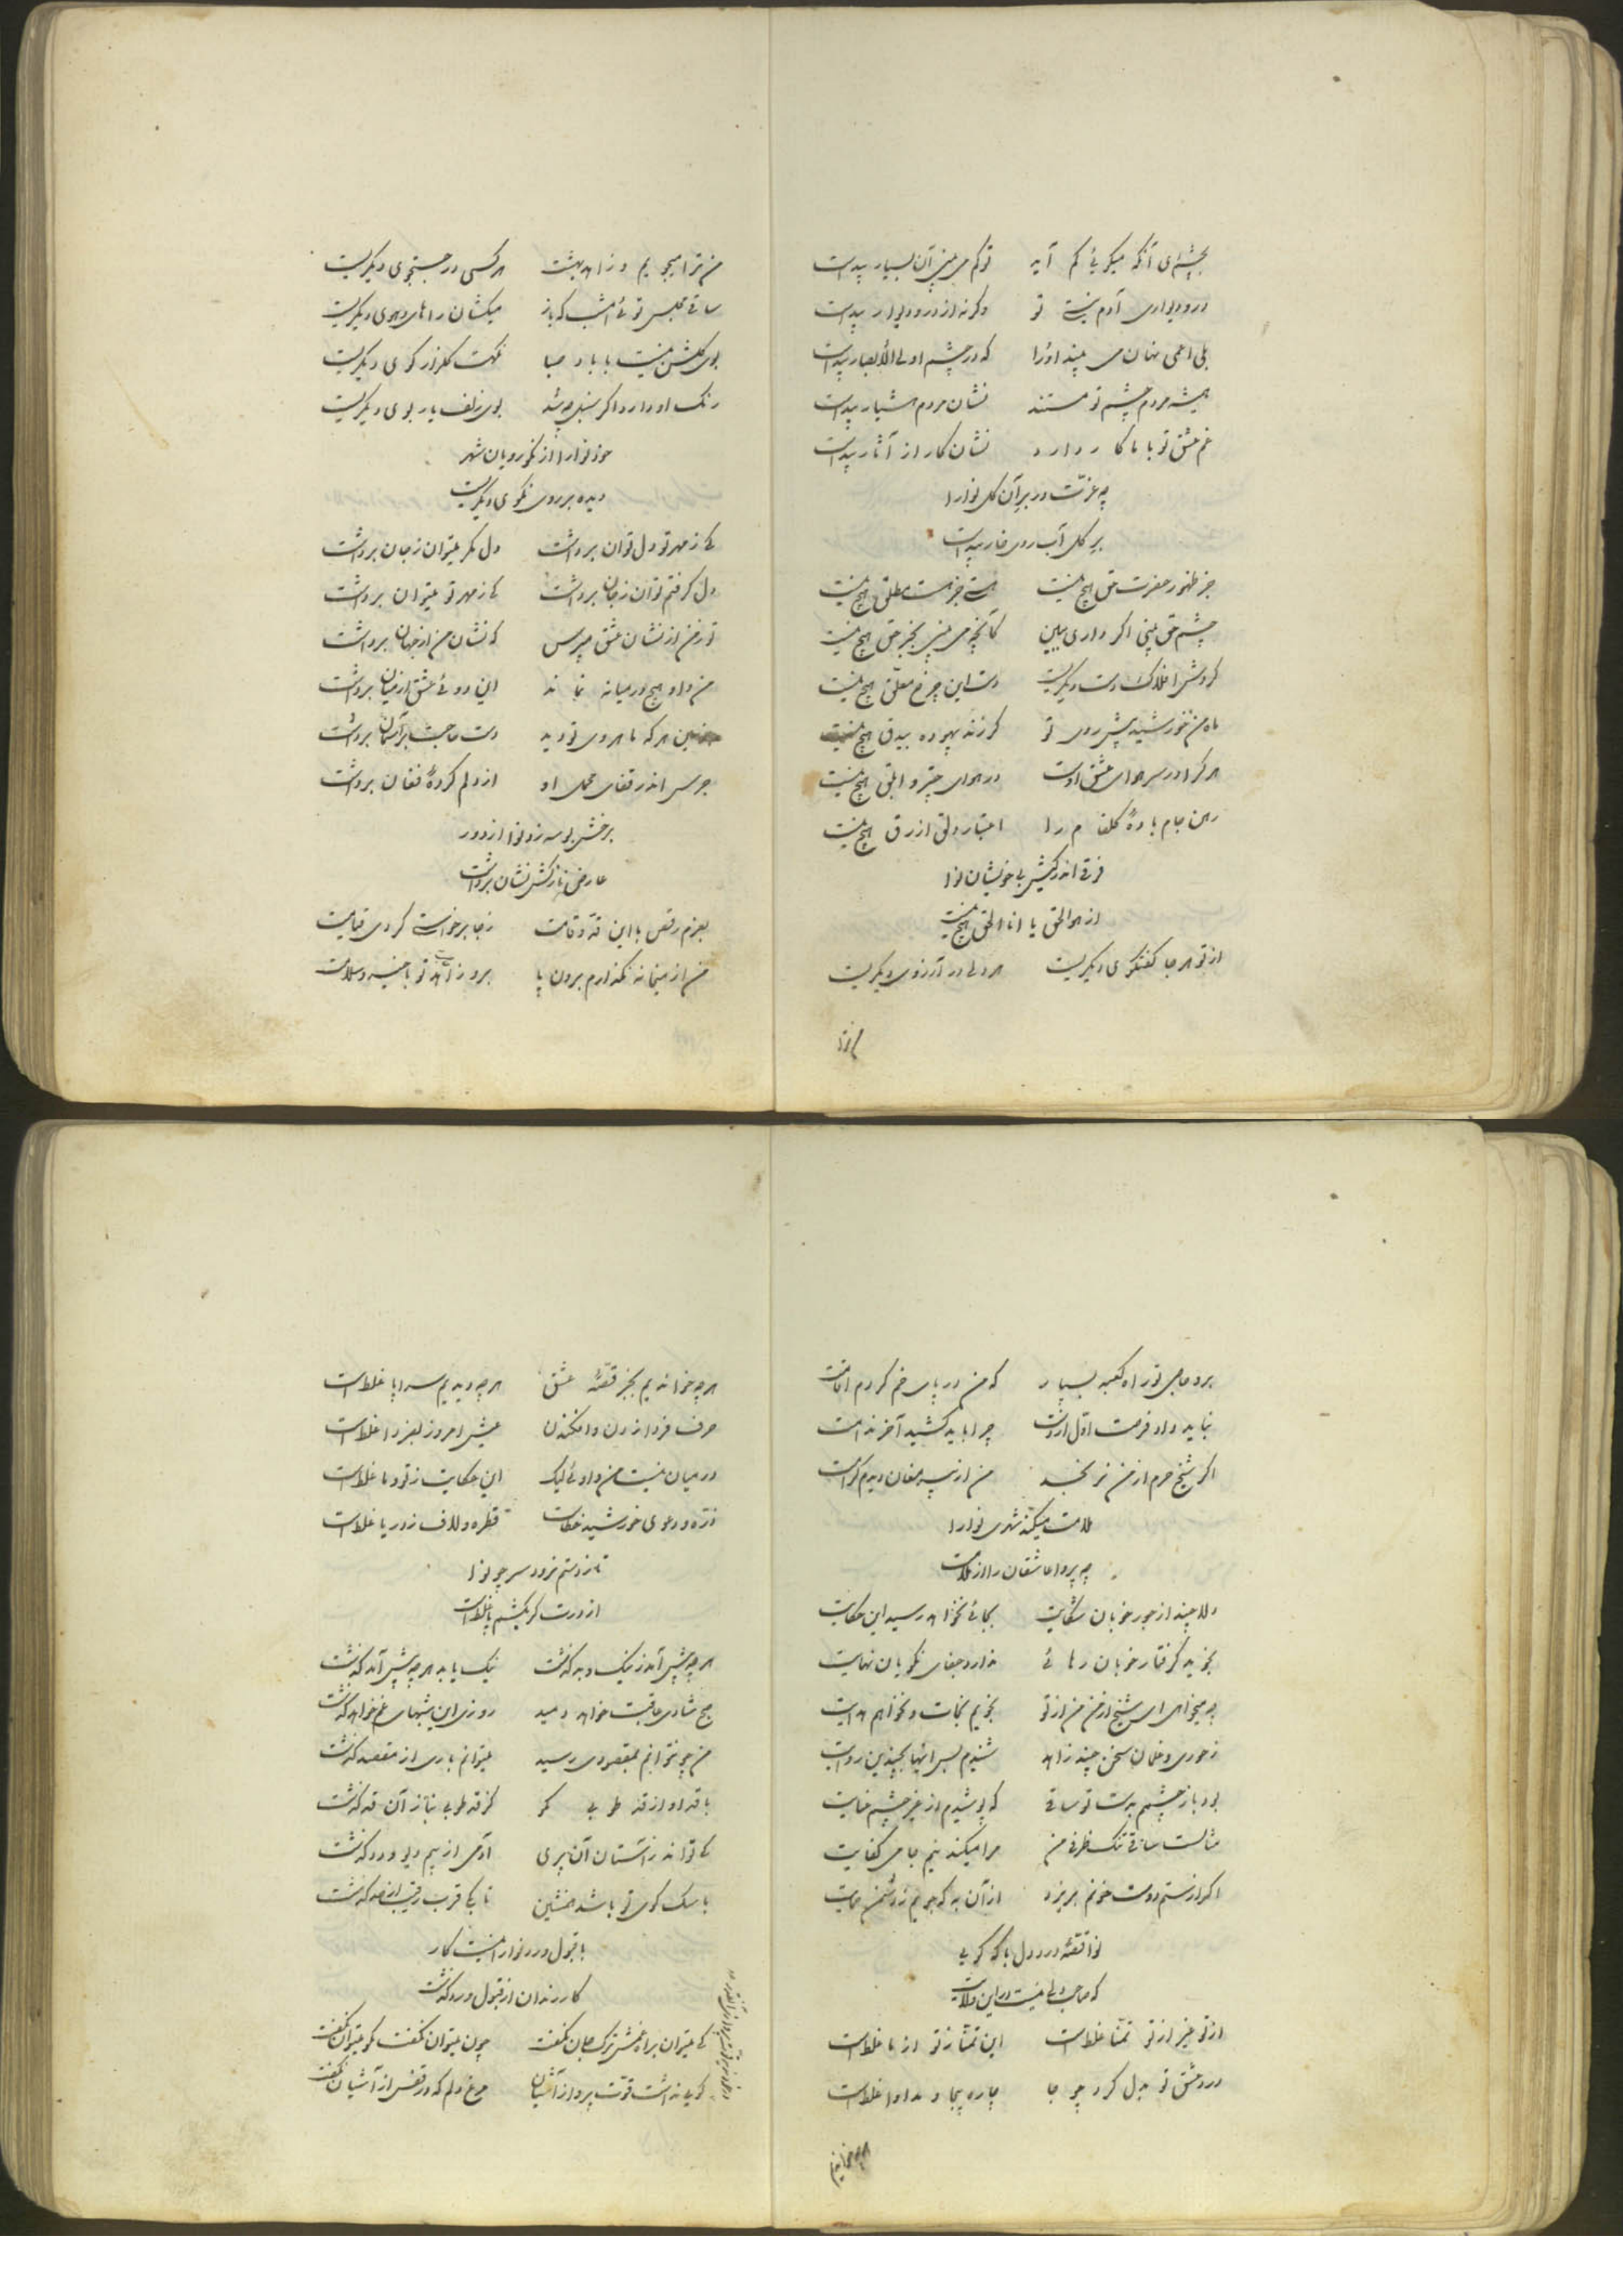 بچشم آنکه میگوئی کم آید توکم می بینی آن بسیار پیداست
در و دیواری آدم نیستی تو وگرنه از در و دیوار پیداست
بلی اعمی نهان می بیند او را که در چشم اولی الابصار پیداست
همیشه مردم چشم تو مستند نشان مردم هشیار پیداست
غم عشق تو با ما کار دارد نشان کار از آثار پیداست
چه عزت در بر آن گل نوا را
بر گل آب روی خار پیداست
جز ظهور حضرت حق هیچ نیست هستئ جز هست مطلق هیچ نیست
چشم حق بینی اگر داری ببین کآنچه می بینی بجز حق هیچ نیست
گردش افلاک دست دیگریست دست این چرخ معلق هیچ نیست
ماه من خورشید پیش روی تو گر زند بیهوده بیدق هیچ نیست
هر که را در سر هوای عشق اوست در هوای چتر و ابلق هیچ نیست
رهن جام باده گلفام را اعتبار دلق ازرق هیچ نیست
فرقی اندر کیش بی خویشان نوا
از هو الحق یا انا الحق هیچ نیست
از تو هر جا گفتگوی دیگریست هر دلی در آرزوی دیگریست
من ترا
من ترا میجویم و زاهد بهشت هر کسی در جستجوی دیگریست
ساقی مجلس توئی امشب که باز میکشان را های و هوی دیگریست
بوی گلشن نیست با باد صبا نکهت گلزار کوی دیگریست
رنگ او دارد اگر سنبل چه شد بوی زلف یار بوی دیگریست
جز نوا را از نکورویان شهر
دیده بر روی نکوی دیگریست
کی ز مهر تو دل توان برداشت دل مگر میتوان ز جان برداشت
دل گرفتم توان ز جان برداشت کی ز مهر تو میتوان برداشت
تو ز من از نشان عشق مپرس که نشان من از جهان برداشت
من و او هیچ در میانه نماند این دوئی عشق از میان برداشت
هر که ماه روی تو دید دست حاجت بر آسمان برداشت
جرس اندر قفای محمل او از دلم گرده فغان برداشت
بر رخش بوسه زد نوا از دور
عارض نازکش نشان برداشت
بعزم رقص با این قد و قامت ز جا برخواستی کردی قیامت
من از میخانه نگذارم برون پا برو زاهد تو با خیر و سلامت
برو حاجی تو راه کعبه بسپار که من در پای خم کردم اقامت
نباید داد فرصت اول از دست چرا باید کشید آخر ندامت
اگر شیخ حرم از من برنجد من از پیر مغان دیدم کرامت
ملامت میکند شهری نوا را
چه پروا عاشقان را از ملامت
دلا چند از جور خوبان شکایت بجائی نخواهد رسید این حکایت
نجوید گرفتار خوبان رهائی ندارد جفای نکویان نهایت
چه میخواهی ای شیخ از من من از تو نجویم نجات و نخواهم هدایت
ز حوری و غلمان سخن چند زاهد شنیدم بس اینها بچندین روایت
بود باز چشمم بدست تو ساقی که پوشیدم از غیر چشم عنایت
منالست ساقی تنک ظرفی من مرا میکند نیم جامی کفایت
اگر از ستم دوست خونم بریزد از آن به که جویم ز دشمن حمایت
نوا قصه درد دل با که گوئی
که صاحبدلی نیست در این ولایت
از تو غیر از تو تمنا غلط است این تمنا ز تو از ما غلط است
درد عشق تو بدل کرد چو جا چاره بیجا و مداوا غلط است
هر چه خواندیم
هر چه خواندیم بجز قصه عشق هر چه دیدیم سراپا غلط است
حرف فردا زدن و افکندن عیش امروز بفردا غلط است
در میان نیست من و اوئی لیک این حکایت ز تو و ما غلط است
ذره و دعوی خورشید خطاست قطره و لاف ز دریا غلط است
تا ز دستم نرود سر چو نوا
از درت گر بکشم پا غلط است
هر چه پیش آمد ز نیک و بد گذشت نیک باید هر چه پیش آمد گذشت
صبح شادی عاقبت خواهد دمید روزی این شبهای غم خواهد گذشت
من چو نتوانم بمقصودی رسید میتوانم باری از مقصد گذشت
با قد او از قد طوبی مگو کز قد طوبی بناز آن قد گذشت
کی تواند ز آستان آن پری آدمی از بیم دیو و دد گذشت
با سگ کوی تو باشد همنشین تا بکی قرب رقیب از حد گذشت
با قبول و رد نوا را نیست کار
کار رندان از قبول و رد گذشت
کی میتوان برای غمش ترک جان نگفت چون میتوان نگفت که میتوان نگفت
گوئی نداشت قوت پرواز آشیان مرغ دلم که در قفس از آشیان نگفت